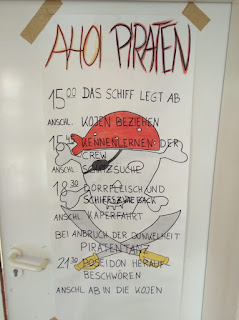 AHOI PIRATEN
15:00 DAS SCHIFF LEGT AB
ANSCHL. KOJEN BEZIEHEN
15:45 KENNENLERNEN DER
CREW
ANSCHL. SCHATZSUCHE
18:30 DÖRRFLEISCH UND
SCHIFFSZWIEBACK
ANSCHL. KAPERFAHRT
BEI ANBRUCH DER DUNKELHEIT
PIRATENTANZ
21:30 POSEIDON HERAUF-
BESCHWÖREN
ANSCHL. AB IN DIE KOJEN